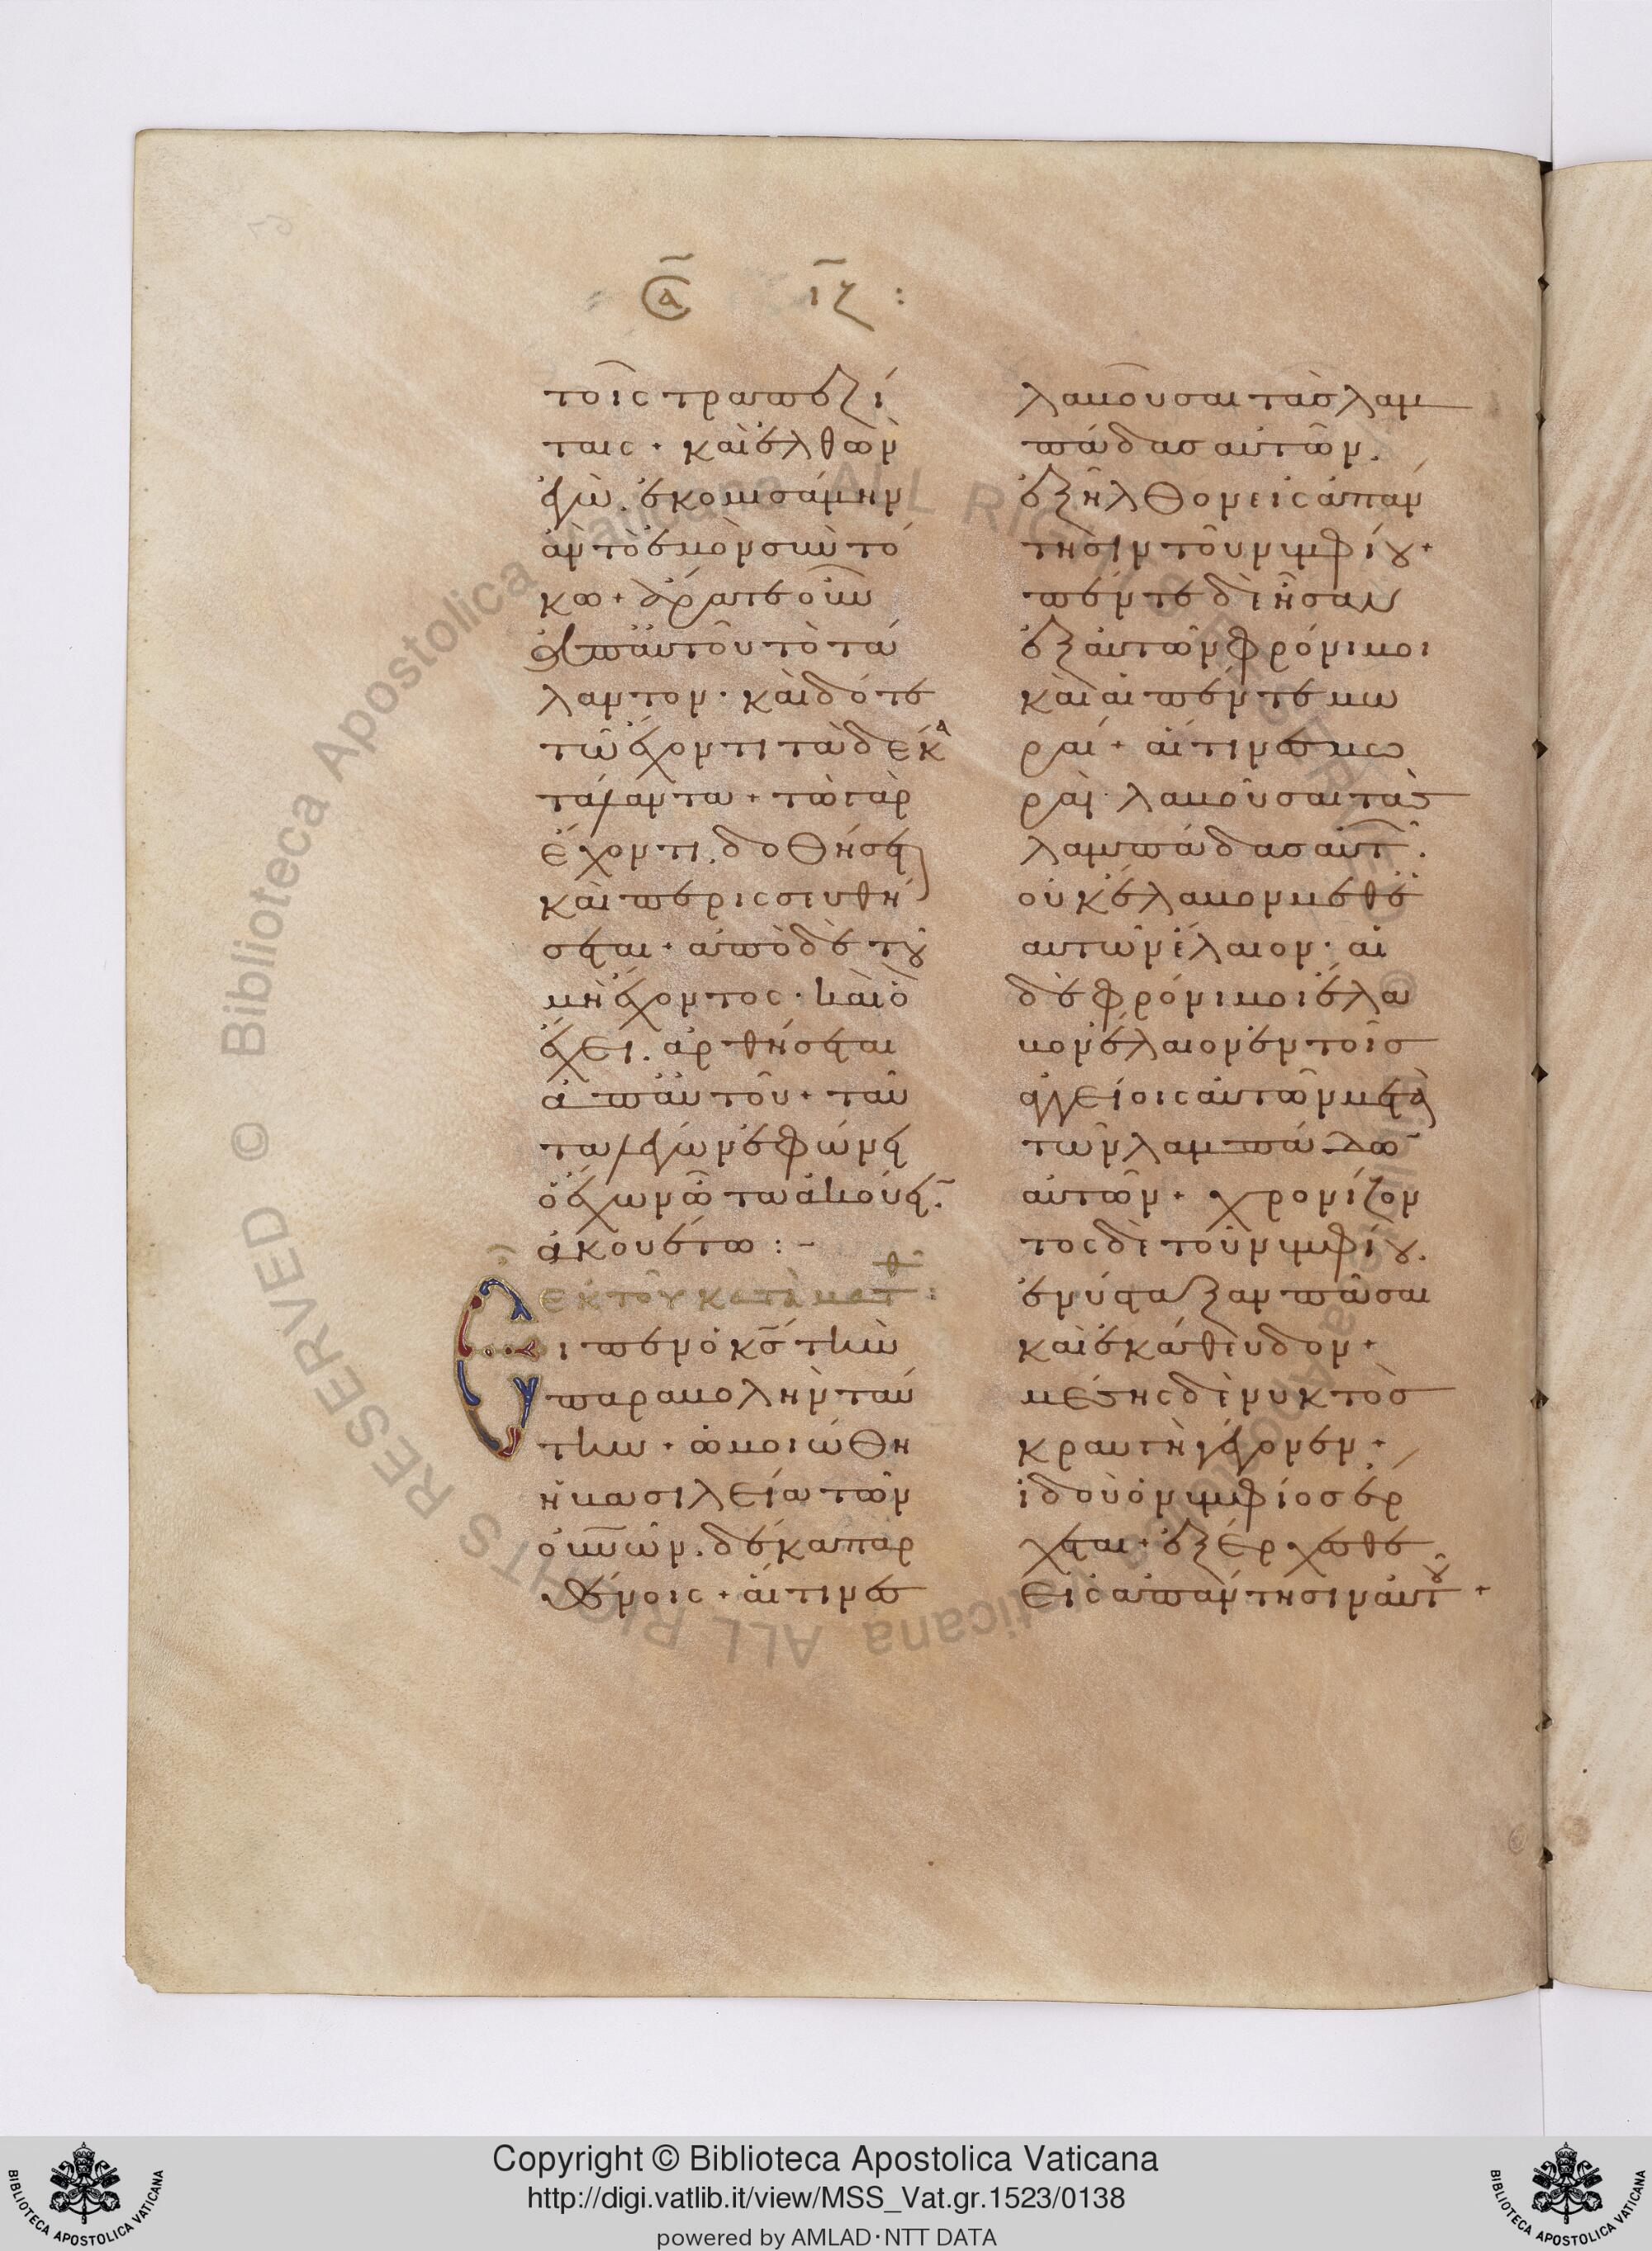 Σα ιζ :
τοῖς τραπεζί
ταις + καὶ ἐλθὼν
ἐγὼ. ἐκομισάμην
ἂν τὸ ἐμὸν σὺν τό
κω + ἄρατε οὖν
ἀπ' αὐτοῦ τὸ τά
λαντον · καὶ δότε
τῶ ἔχοντι τὰ δέκα
τάλαντα + τῶ γὰρ
ἔχοντι. δοθήσε
ται καὶ περισσευθή
σεται · ἀπὸ δὲ τοῦ
μὴ ἔχοντος · καὶ ὃ
ἔχει. ἀρθήσεται
ἀπ' αὐτοῦ + ταῦ
τα λέγων ἐφώνει
ὁ ἔχων ὦτα ἀκούειν.
ἀκουέτω : –
ἐκ τοῦ κατὰ ματθ :
Εἶπεν ὁ κς τὴν
παραβολὴν ταύ
την + ὡμοιώθη
ἡ βασιλεία τῶν
οὐνῶν. δέκα παρ
θένοις + αἵτινες
λαβοῦσαι τὰς λαμ
πάδας αὐτῶν.
ἐξῆλθον εἰς ἀπάν
τησιν τοῦ νυμφίου +
πέντε δὲ ἦσαν
ἐξ αὐτῶν φρόνιμοι
καὶ αἱ πέντε μω
ραί + αἵτινες μω
ραὶ · λαβοῦσαι τὰς
λαμπάδας αὐτῶν.
οὐκ ἔλαβον μεθ' ἑ
αυτῶν ἔλαιον · αἱ
δὲ φρόνιμοι ἔλα
βον ἔλαιον ἐν τοῖς
ἀγγείοις αὐτῶν μετὰ
τῶν λαμπάδων
αὐτῶν + χρονίζον
τος δὲ τοῦ νυμφίου.
ἐνύσταξαν πᾶσαι
καὶ ἐκάθευδον +
μέσης δὲ νυκτὸς
κραυγὴ γέγονεν +
ἰδοὺ ὁ νυμφίος ἔρ
χεται + ἐξέρχεσθε
εἰς ἀπάντησιν αὐτοῦ +
Copyright © Biblioteca Apostolica Vaticana
http://digi.vatlib.it/view/MSS_Vat.gr.1523/0138
powered by AMLAD·NTT DATA
BIBLIOTECA APOSTOLICA VATICANA
BIBLIOTECA APOSTOLICA VATICANA
Biblioteca Apostolica Vaticana ALL RIGHTS RESERVED ©